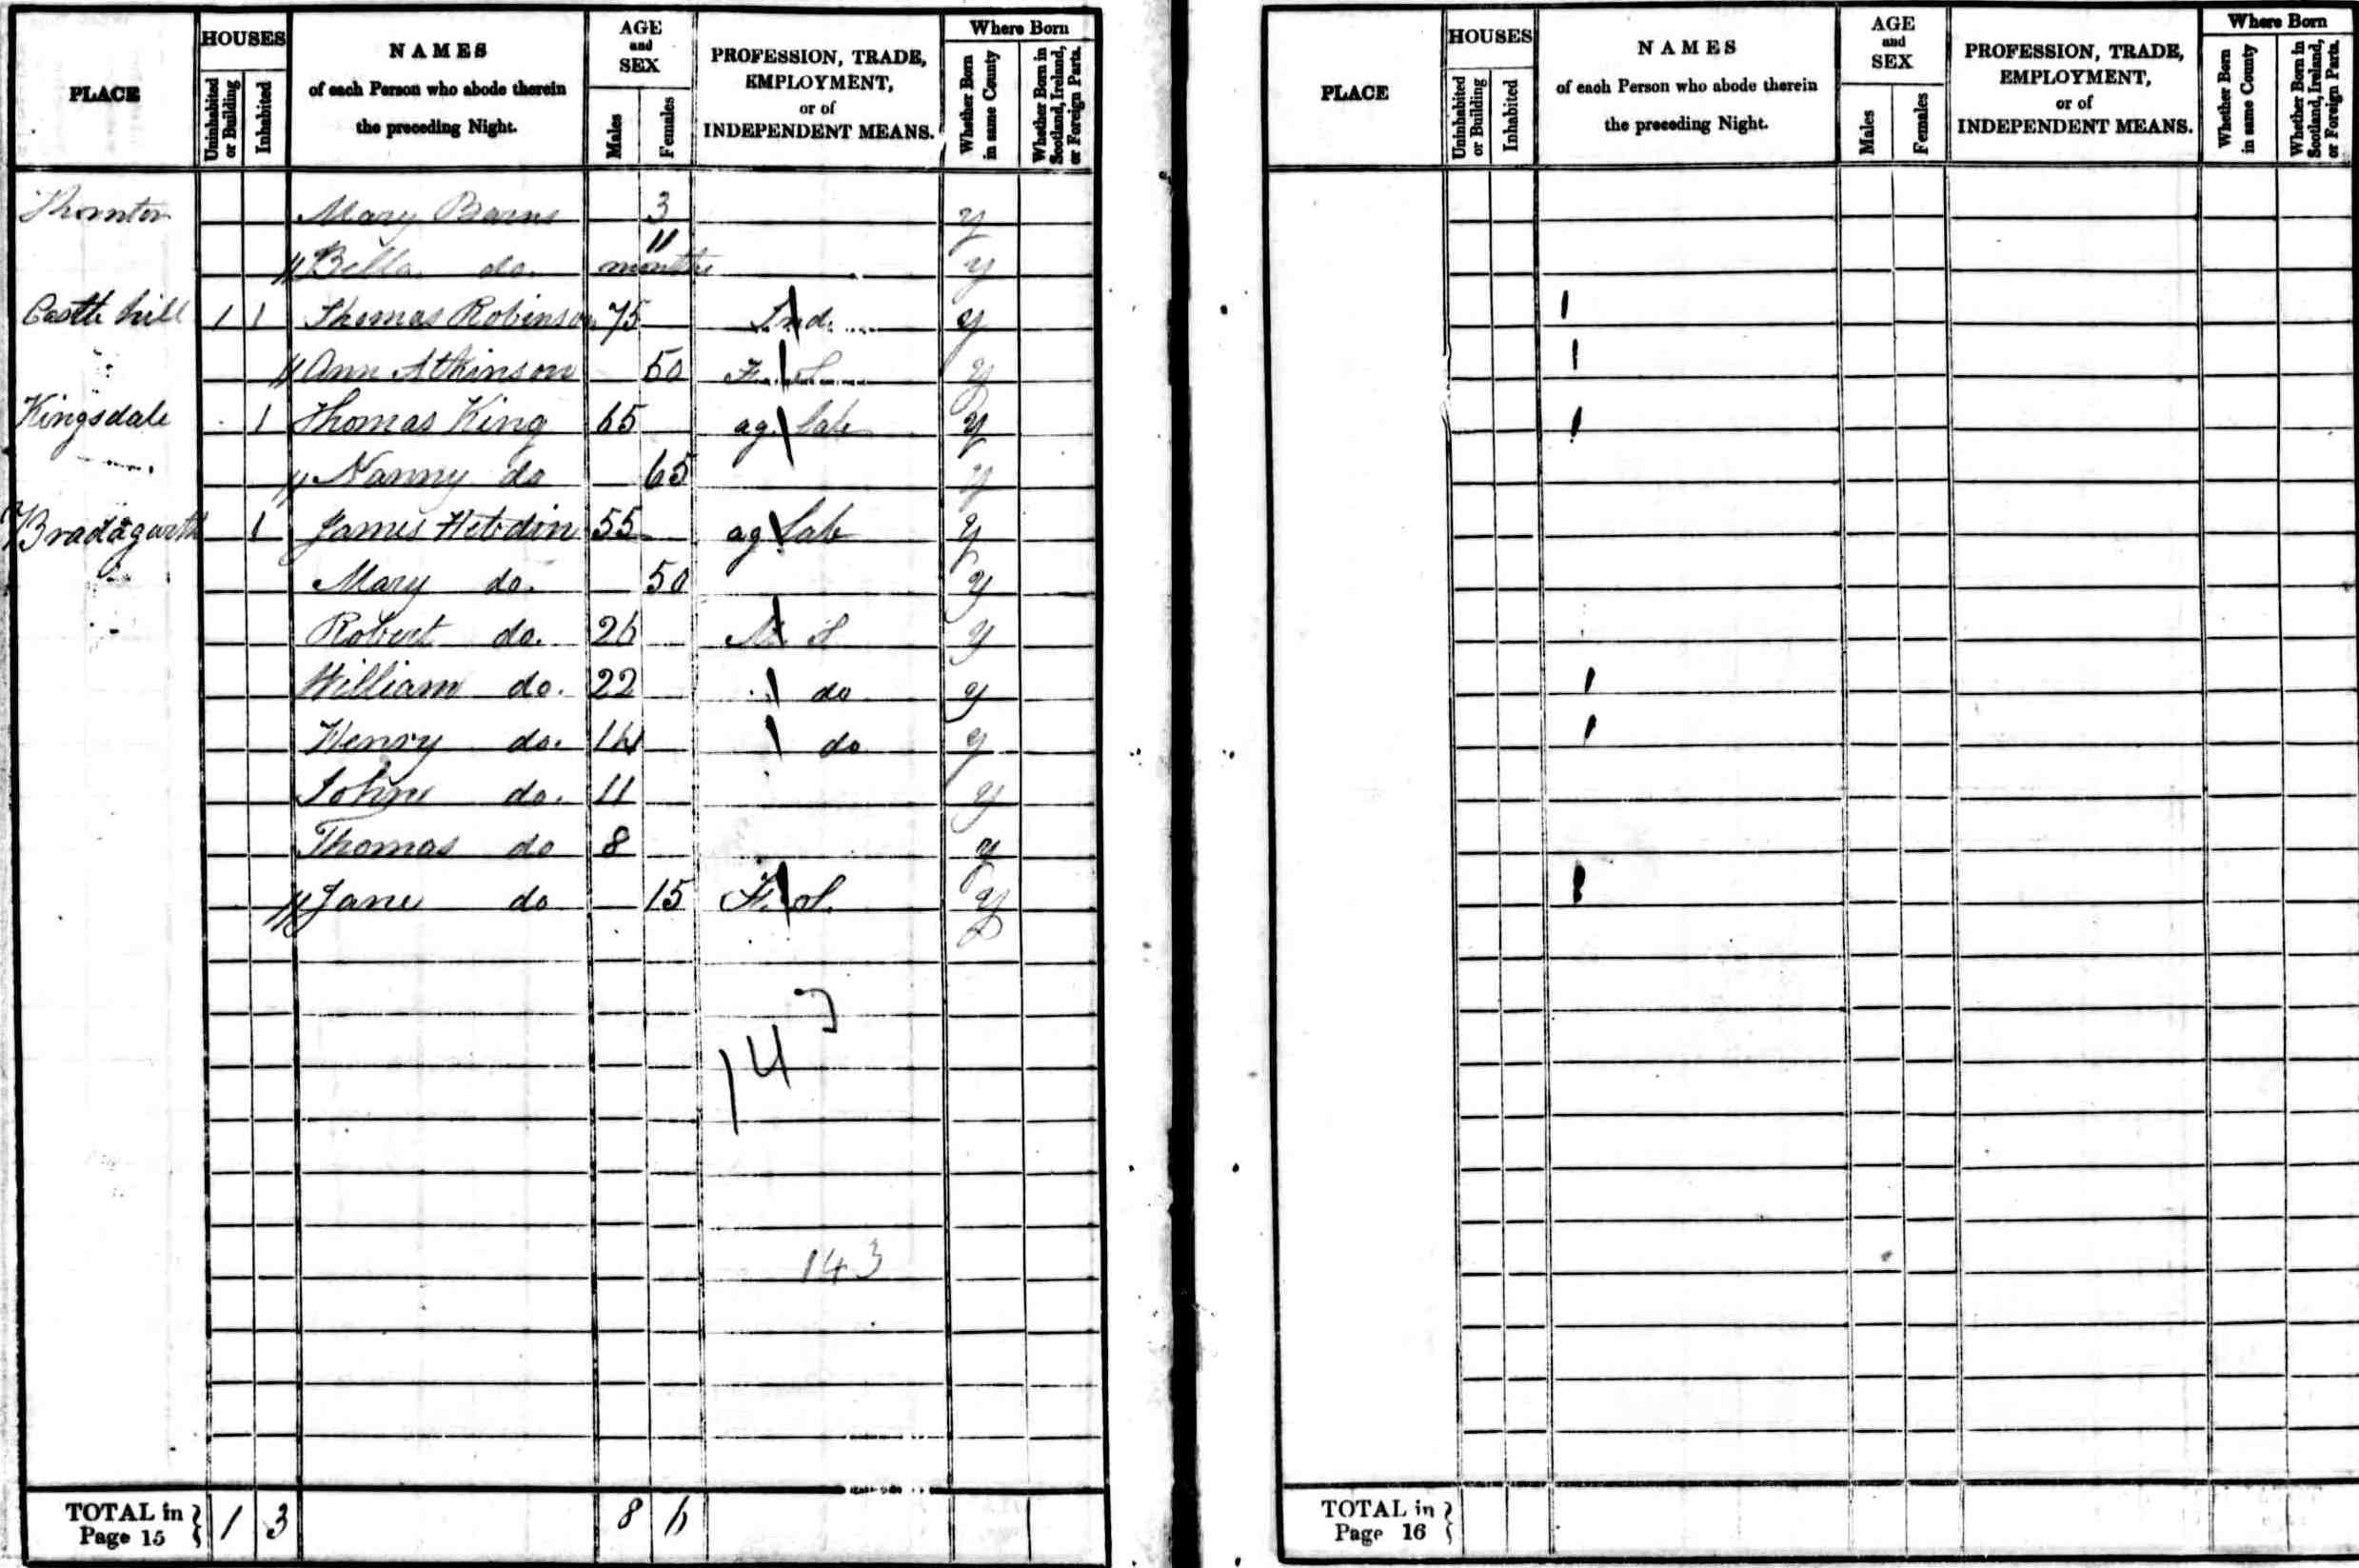 PLACE HOUSES NAMES of each Person who abode therein the preceding Night. AGE and SEX PROFESSION, TRADE, EMPLOYMENT, or of INDEPENDENT MEANS. Where Born
Uninhabited or Building Inhabited Males Females Whether Born in same County Whether Born in Scotland, Ireland, or Foreign Parts.
Thornton Mary Barns 3 y
// Bella do. 11 months y
Castle hill 1 1 Thomas Robinson 75 Ind. y
// Ann Atkinson 50 F. S y
Kingsdale 1 Thomas King 65 ag. Lab y
// Nanny do 65 y
Bradagarth 1 James Hebdin 55 ag Lab y
Mary do. 50 y
Robert do. 26 M S y
William do. 22 do y
Henry do. 14 do y
John do. 11 y
Thomas do 8 y
// Jane do 15 F. S. y
14
143
TOTAL in Page 15 } 1 3 8 6
PLACE HOUSES NAMES of each Person who abode therein the preceding Night. AGE and SEX PROFESSION, TRADE, EMPLOYMENT, or of INDEPENDENT MEANS. Where Born
Uninhabited or Building Inhabited Males Females Whether Born in same County Whether Born in Scotland, Ireland, or Foreign Parts.
TOTAL in Page 16 }